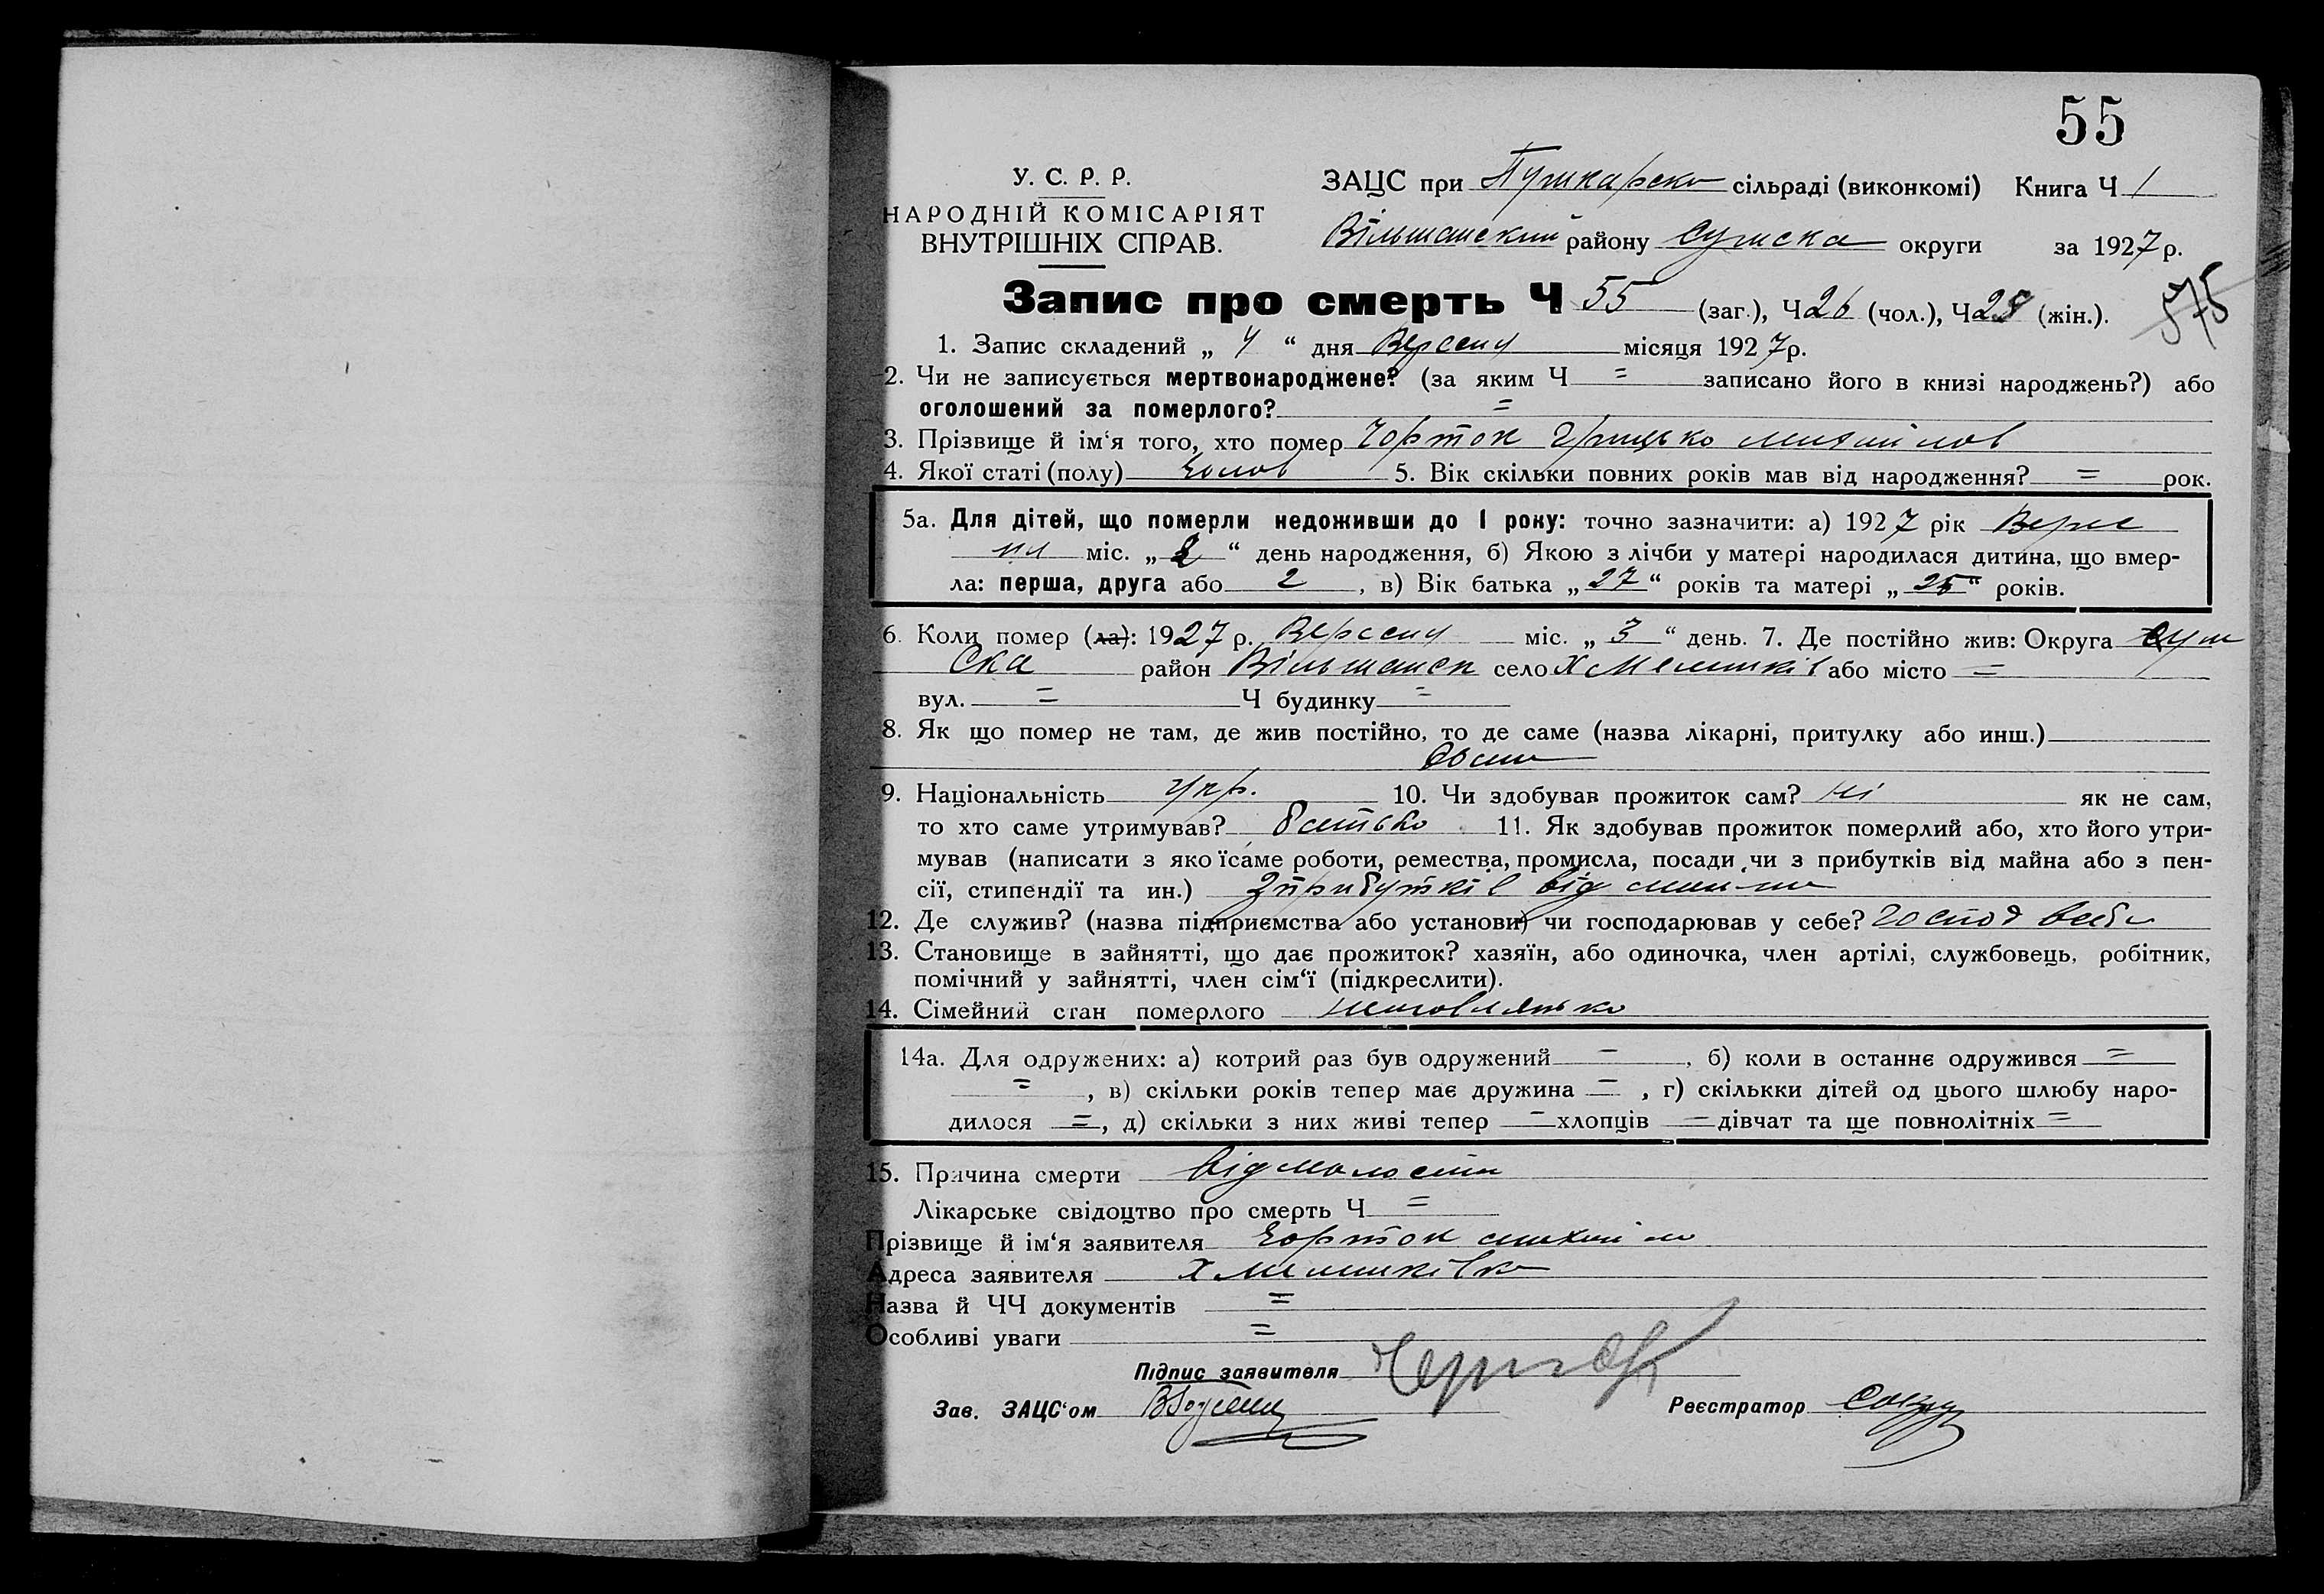 55
У. С. Р. Р.
НАРОДНІЙ КОМІСАРІЯТ
ВНУТРІШНІХ СПРАВ.
ЗАЦС при Пушкарско сільраді (виконкомі) Книга Ч 1
Вільшанский району Сумска округи за 1927 р.
Запис про смерть Ч 55 (заг.), Ч 26 (чол.), Ч 29 (жін.).
575
1. Запис складений „ 4 “ дня Вересня місяця 1927 р.
2. Чи не записується мертвонароджене? (за яким Ч = записано його в книзі народжень?) або
оголошений за померлого? =
3. Прізвище й ім‘я того, хто помер Чорток Грицько Михайлов
4. Якої статі (полу) Чолов 5. Вік скільки повних років мав від народження? = рок.
5а. Для дітей, що померли недоживши до 1 року: точно зазначити: а) 1927 рік Верес
ня міс. „ 2 “ день народження, б) Якою з лічби у матері народилася дитина, що вмер-
ла: перша, друга або 2 , в) Вік батька „ 27 “ років та матері „ 25 “ років.
6. Коли помер (ла): 1927 р. Вересня міс. „ 3 “ день. 7. Де постійно жив: Округа Сум
ска район Вільшанск село Хмеликів або місто =
вул. = Ч будинку =
8. Як що помер не там, де жив постійно, то де саме (назва лікарні, притулку або инш.)
9. Національність укр. 10. Чи здобував прожиток сам? ні як не сам,
то хто саме утримував? батько 11. Як здобував прожиток померлий або, хто його утри-
мував (написати з яко їсаме роботи, ремества, промисла, посади чи з прибутків від майна або з пен-
сії, стипендії та ин.) Зприбутків від майна
12. Де служив? (назва підприємства або установи) чи господарював у себе? Господ всебе
13. Становище в зайнятті, що дає прожиток? хазяїн, або одиночка, член артілі, службовець, робітник,
помічний у зайнятті, член сім‘ї (підкреслити).
14. Сімейний стан померлого немовлятко
14а. Для одружених: а) котрий раз був одружений = , б) коли в останнє одружився =
= , в) скільки років тепер має дружина = , г) скількки дітей од цього шлюбу наро-
дилося =, д) скільки з них живі тепер = хлопців = дівчат та ще повнолітніх =
15. Причина смерти від малости
Лікарське свідоцтво про смерть Ч =
Прізвище й ім‘я заявителя Чорток Михайло
Адреса заявителя Хмеликівка
Назва й ЧЧ документів =
Особливі уваги =
Підпис заявителя
Зав. ЗАЦС‘ом Реєстратор